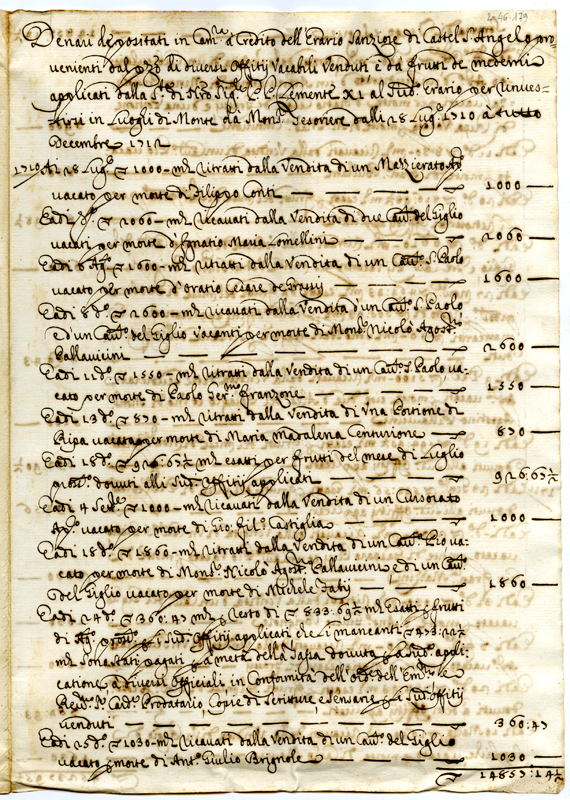 Denari depositati in Cam.ra à Credito dell'Erario Sanziore di Castel S. Angelo pro
venienti dal prezzo di diversi Offitij Vacabili Venduti e da frutti de medemi
applicati dalla S.tà di N.ro Sig.re P.P. Clemente XI al Sud.o Erario per rinves=
tirsi in Luoghi di Monte da Mons.r Tesoriere dalli 28 Lug.o 1710 à tutto
Decembre 1712
1710 Adi 28 Lug.o ∇ 1000 - m.ta ritratti dalla Vendita di un Mazzierato
vacato per morte di Filippo Conti 1000
Eadi ∇ 2060 - m.ta ricavati dalla Vendita di due Cau.ti del Giglio
vacati per morte d'Ignatio Maria Lomellini 2060
Eadi 6 Ag.o ∇ 1600 - m.ta ritratti dalla Vendita di un Cau.to S. Paolo
vacato per morte d'oratio Cesare de Grassij 1600
Eadi 8 d.o ∇ 2600 - m.ta ricavati dalla Vendita d'un Cau.to S. Paolo
e d'un Cau.to del Giglio Vacanti per morte di Mons.r Nicolò Agost.no
Pallavicini 2600
Eadi 11 d.o ∇ 1550 - m.ta ritratti dalla Vendita di un Cau.to S. Paolo va=
cato per morte di Paolo Ger.mo Franzone 1550
Eadi 13 d.o ∇ 830 - m.ta ritratti dalla Vendita di Una Portione di
Ripa vacata per morte di Maria Madalena Centurione 830
Eadi 18 d.o ∇ 926:63½ m.ta esatti per frutti del mese di Luglio
pross.o dovuti alli Sud.i Offitij applicati 926:63½
Eadi 4 Sett.e ∇ 1000 - m.ta ricavati dalla Vendita di un Cursorato
Ap.co vacato per morte di Gio: Fil.o Castiglia 1000
Eadi 18 d.o ∇ 1860 - m.ta ritratti dalla Vendita di un Cau.to Pio va=
cato per morte di Mons.r Nicolò Agost.o Pallavicini e di un Cau.to
del Giglio vacato per morte di Michele Fabij 1860
Eadi 24 d.o ∇ 360:47 m.ta e resto di ∇ 833:69½ m.ta Esatti p frutti
di Ag.o pross.o p i Sud.i Offitij applicati che i mancanti ∇ 473:22½
m.ta sono stati pagati p a metà della Tassa dovuta p a sud.a appli=
catione a diversi Officiali in Conformità dell'ord.e dell'Em.mo e
Rev.mo S.r Card.l Prodatario, Copie di Scritture e Senserie p i Sud.i Offitij
venduti 360:47
Eadi 25 d.o ∇ 1030 - m.ta ricavati dalla Vendita di un Cau.to del Giglio
vacato p morte di Ant.o Giulio Brignole 1030
∇ 14853:14½